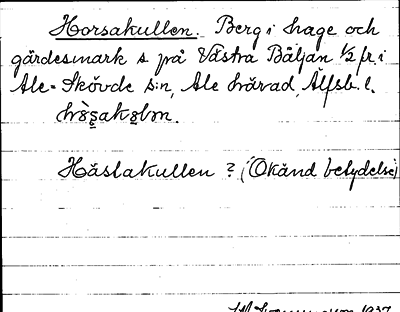 Horsakullen. Berg i hage och
gärdesmark s på Västra Båljan 1/2 fr. i
Ale-Skövde s:n, Ale härad, Älfsb. l.
Hästakullen ? (Okänd betydelse)
1937